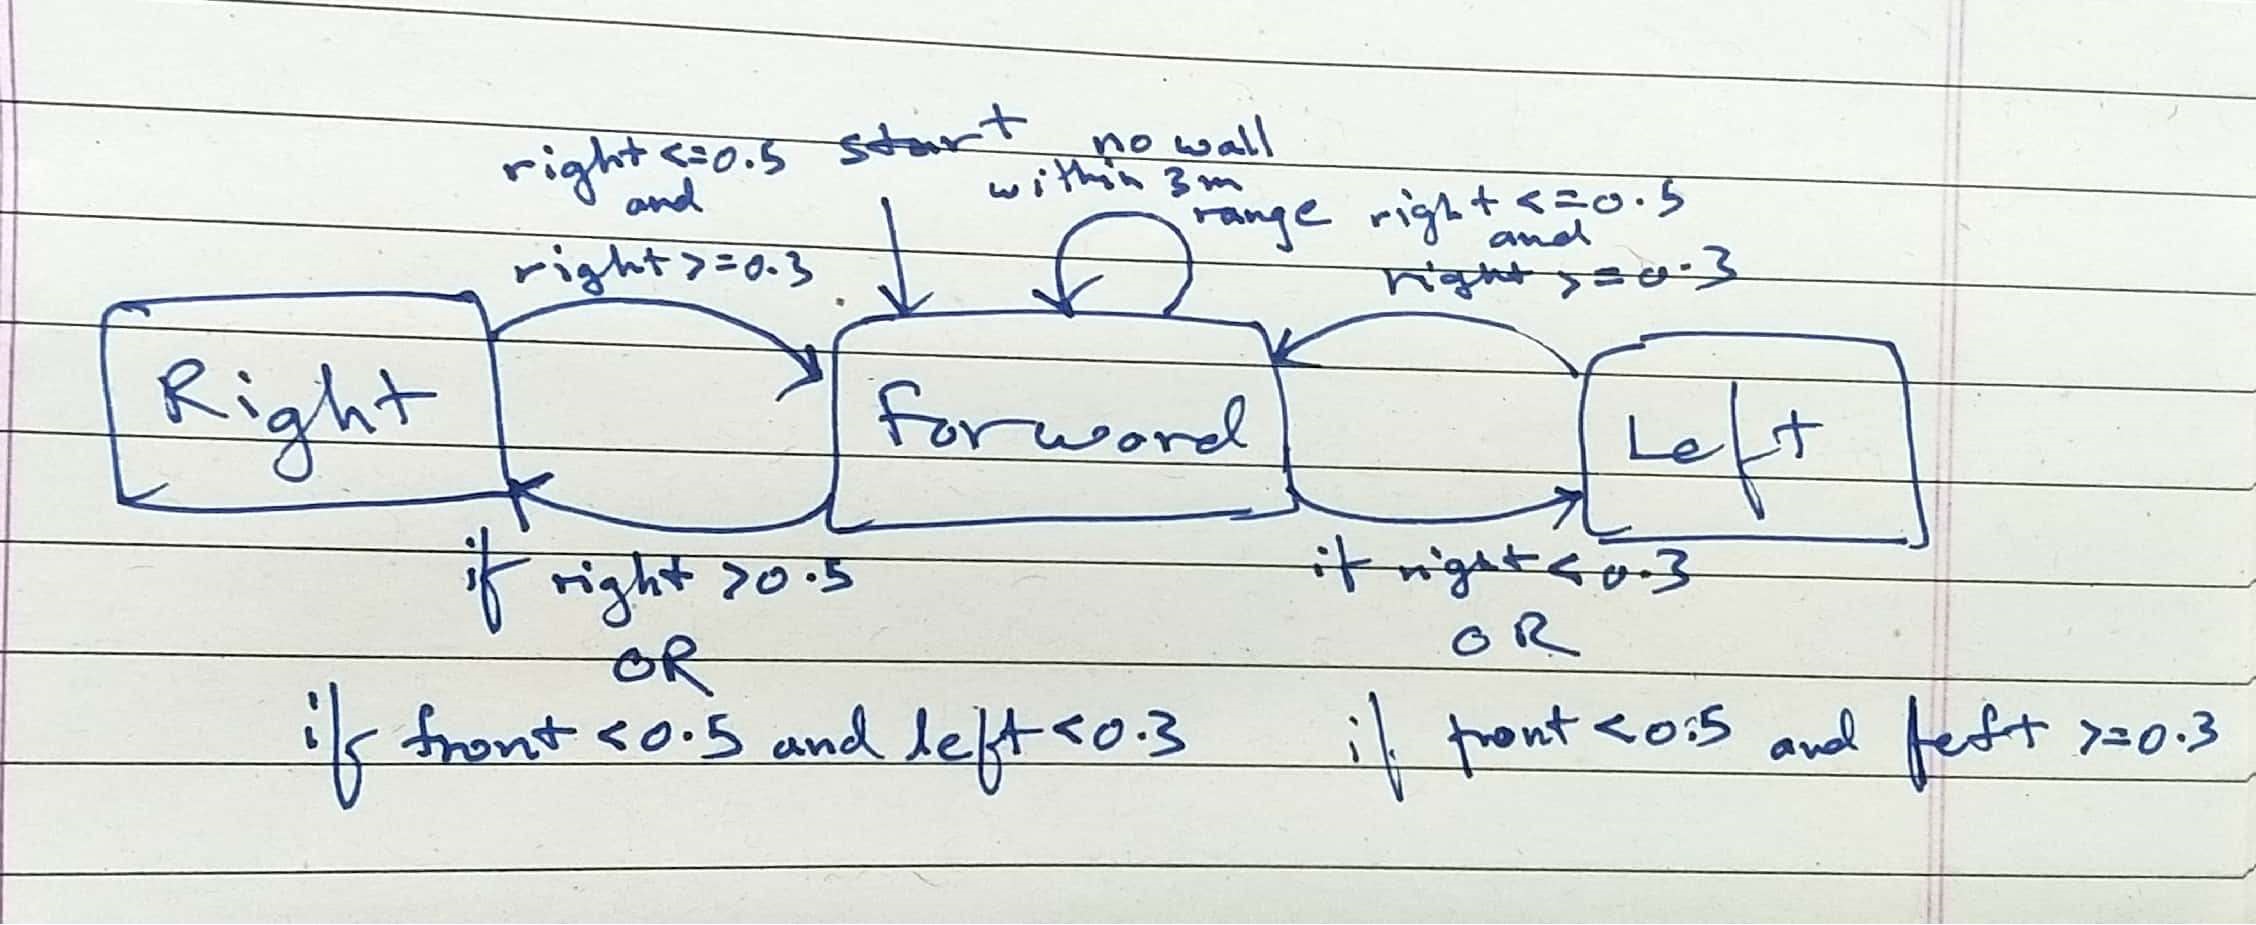 right <=0.5
and
right >=0.3
start
no wall
within 3m
range
right <=0.5
and
right >=0.3
Right
forward
Left
if right >0.5
OR
if front <0.5 and left <0.3
if right <0.3
OR
if front <0.5 and left >=0.3